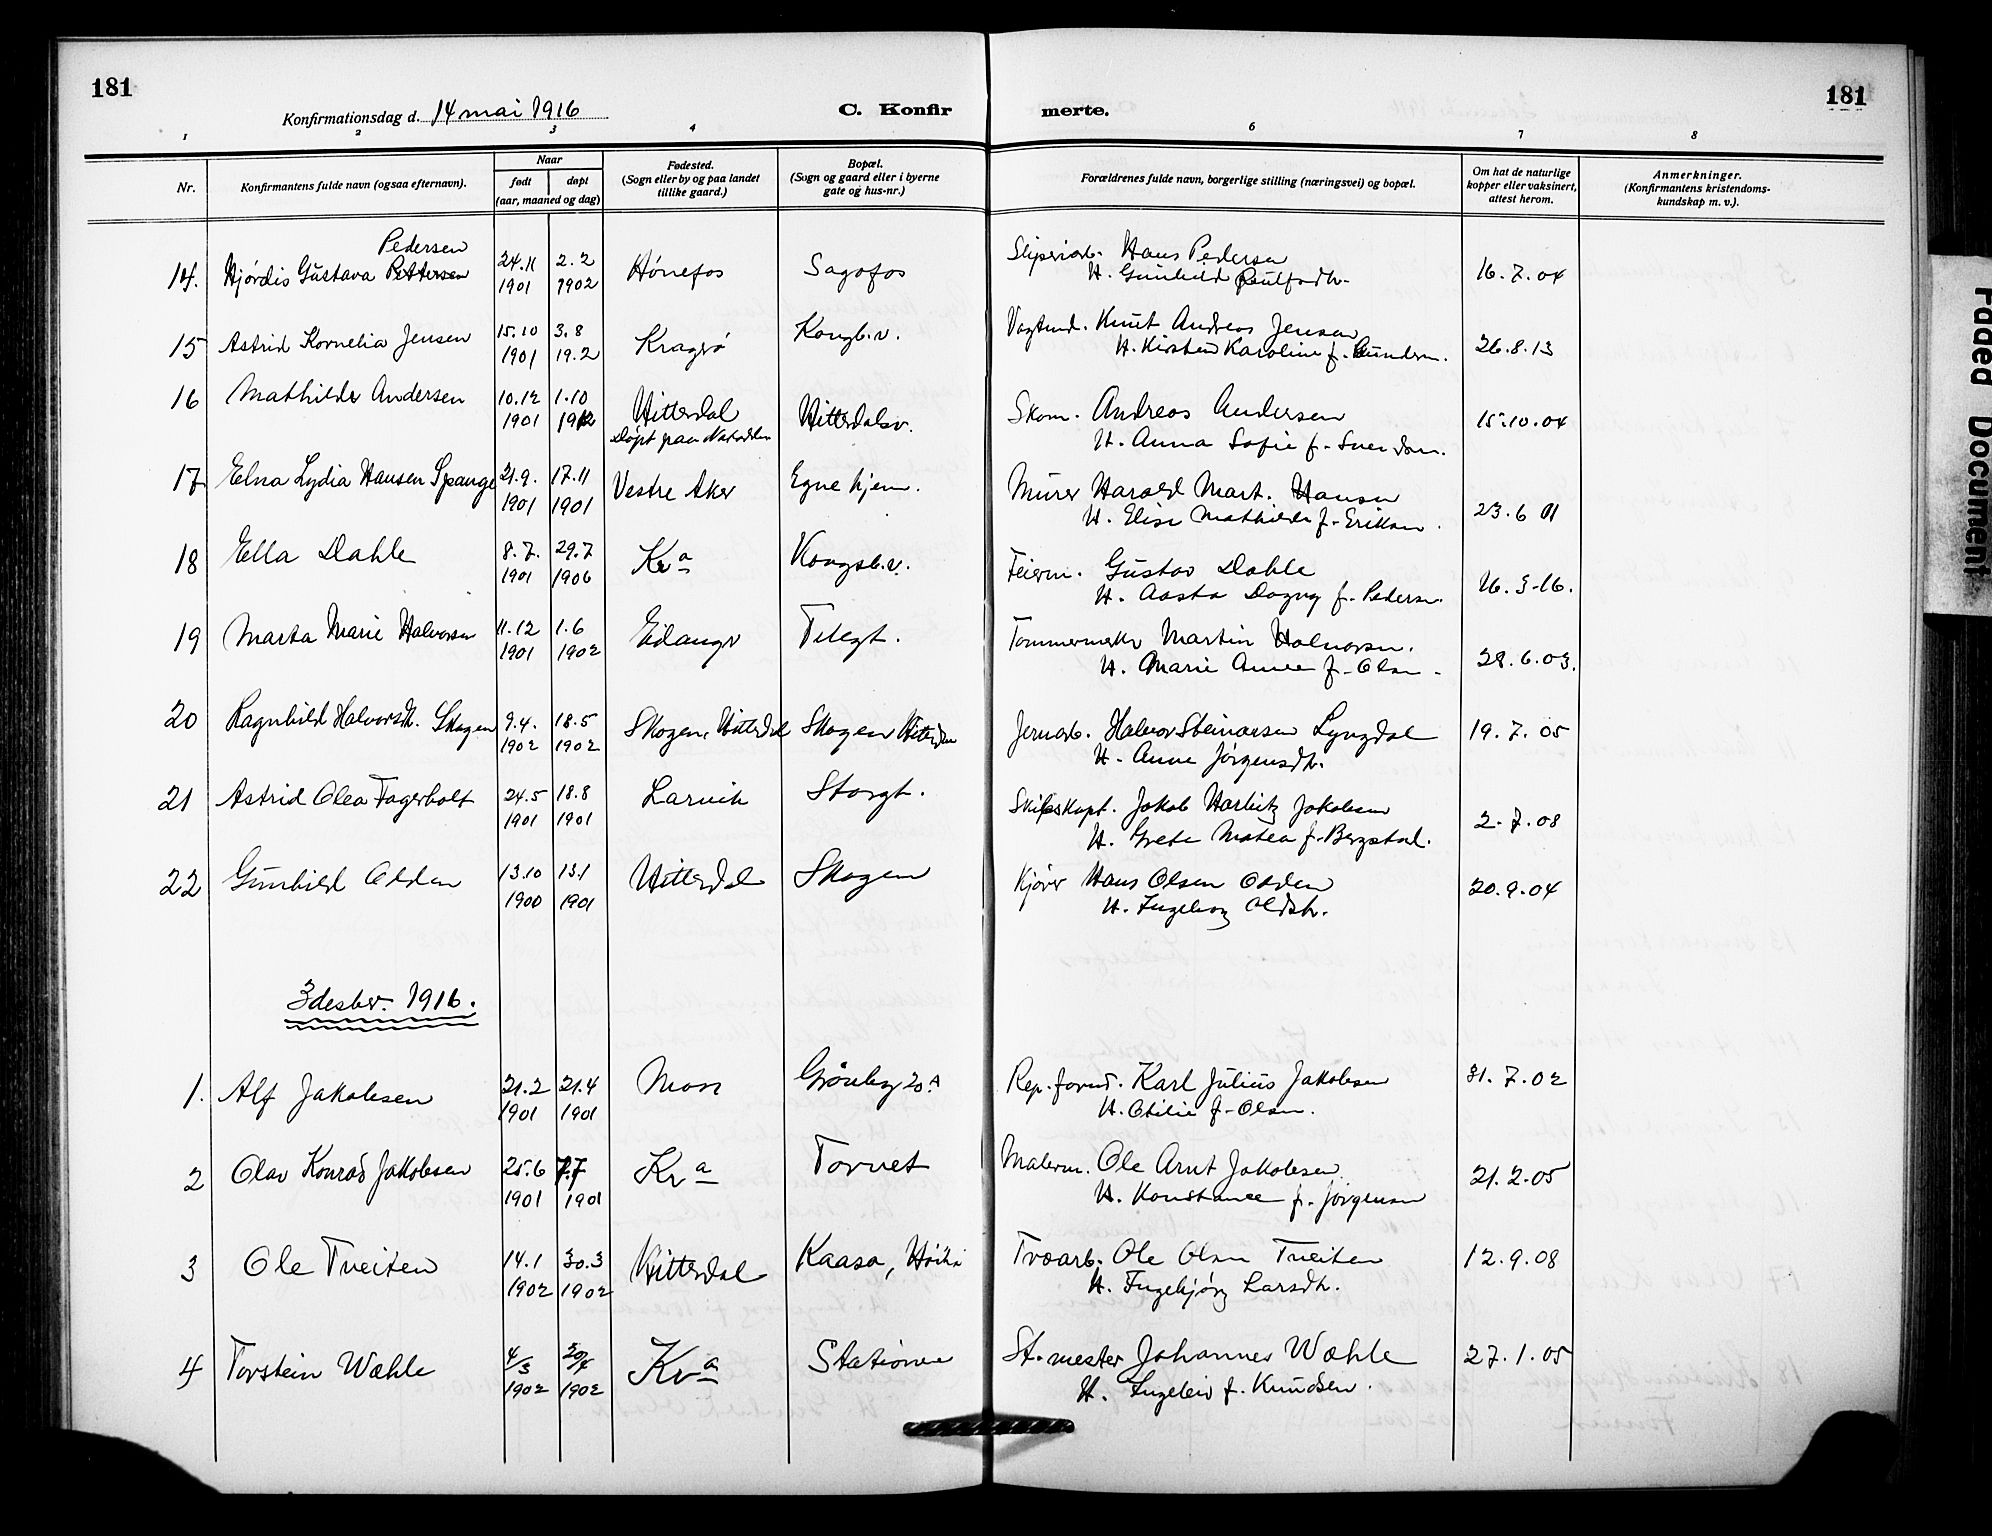 181
Konfirmationsdag d. 14 mai 1916
C. Konfir merte.
181
1 2 3 4 6 7 8
Nr.
Konfirmantens fulde navn (ogsaa efternavn).
Naar
født døpt
(aar, maaned og dag)
Fødested.
(Sogn eller by og paa landet
tillike gaard.)
Bopæl.
(Sogn og gaard eller i byerne
gate og hus-nr.)
Forældrenes fulde navn, borgerlige stilling (næringsvei) og bopæl.
Om hat de naturlige
kopper eller vaksinert,
attest herom.
Anmerkninger.
(Konfirmantens kristendoms-
kundskap m. v.).
Pedersen
14. Hjørdis Gustava Pettersen 24.11 1901 2.2 1902 Hønefos Sagafos Sliperiarb. Hans Pedersen 16.7.04
H. Gunhild
15 Astrid Kornelia Jensen 15.10 1901 3.8 19.2 Kragerø Kongb.v. Knut Andreas Jensen 26.8.13
H. Kirsten Karoline f. Gundersn.
16 Mathilde Andersen 10.12 1901 1.10 1912 Hitterdal Hitterdalsv. Skom. Andreas Andersen 15.10.04
Døpt paa Notodden
H. Anna Sofie f. Svendsn.
17 Elna Lydia Hansen Spange 21.9. 1901 17.11 1901 Vestre Aker Egne hjem. Murer Harald Mart. Hansen 23.6 11
H. Elise Mathilde f. Eriksen.
18 Ella Dahle 8.7. 1901 29.7 1906 Kra Kongsb.v. Feierm. Gustav Dahle 16.3-16.
H. Aasta Dagny f. Pedersn.
19 Marta Marie Halvorsen 11.12 1901 1.6 1902 Eidanger Telegt. Tømmermester Martin Halvorsen. 28.6.03.
H. Marie Anne f. Olsn
20 Ragnhild Halvorsdt. Skogen 9.4. 1902 18.5 1902 Skogen, Hitterdal Skogen Hitterdal Jernarb. Halvor Steinarsen Lyngdal 19.7.05
H. Anne Jørgensdtr.
21 Astrid Olea Fagerholt 24.5 1901 18.8 1901 Larvik Storgt. Skibskapt. Jakob Harbitz Jakobsen 2.7.08
H. Grete Matea f. Bergstad.
22 Gunhild Olden 13.10 1900 13.1 1901 Hitterdal Skogen Kjører Hans Olsen Olden 20.9.04
H. Ingeborg Oldstr.
3 desbr. 1916.
1. Alf Jakobsen 21.2 1901 21.4 1901 Moss Grønbyg 20A Rep. formd. Karl Julius Jakobsen 31.7.02
H. Otilie f. Olsen.
2 Olav Konrad Jakobsen 25.6 1901 7.7 1901 Kra Torvet Malerm. Ole Arnt Jakobsen 21.2.05
H. Konstance f. Jørgensen
3 Ole Tveiten 14.1 1902 30.3 1902 Hitterdal Kaasa, Tvøarb. Ole Olsn Tveiten 12.9.08
H. Ingebjørg Larsdtr.
4 Torstein Wæhle 4/3 1902 20/4 1902 Kra Stationen St.mester Johannes Wæhle 27.1.05
H. Ingeleiv f. Knudsen.
Faded Document